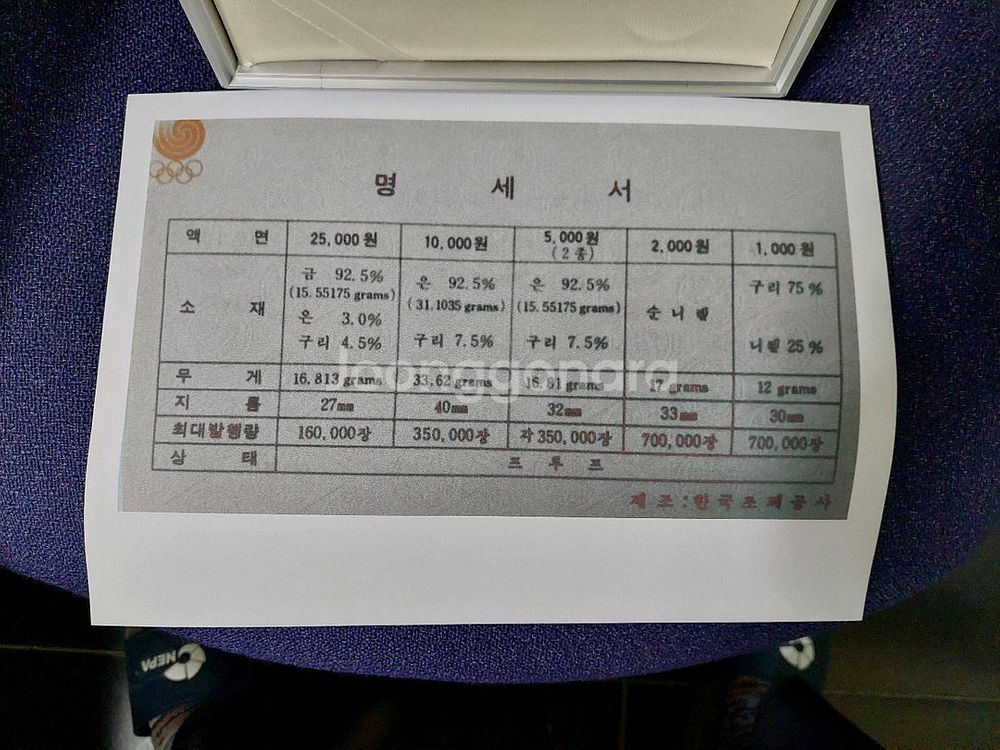 명 세 서
액 면 25,000원 10,000원 5,000원 (2종) 2,000원 1,000원
소 재 금 92.5% (15.55175 grams) 은 3.0% 구리 4.5% 은 92.5% (31.1035 grams) 구리 7.5% 은 92.5% (15.55175 grams) 구리 7.5% 순니켈 구리 75% 니켈 25%
무 게 16.813 grams 33.62 grams 16.81 grams 17 grams 12 grams
지 름 27mm 40mm 32mm 33mm 30mm
최대발행량 160,000장 350,000장 각 350,000장 700,000장 700,000장
상 태 프 루 프
제조:한국조폐공사
joonggonara
NEPA